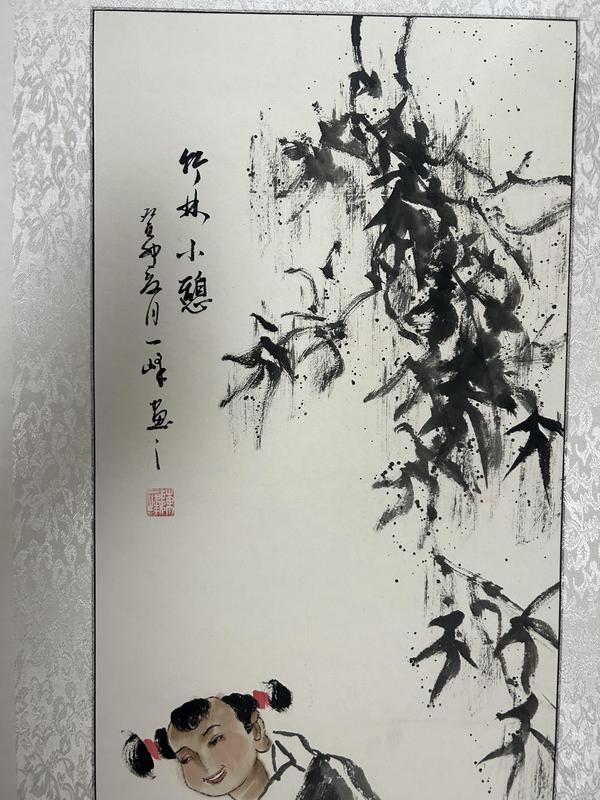 竹林小憩
癸卯夏月一峰畫之